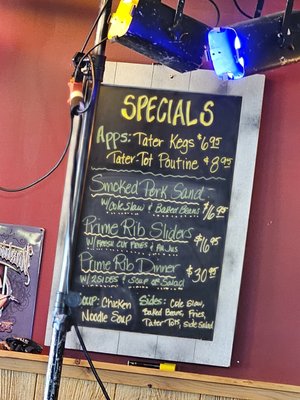 SPECIALS
Apps: Tater Kegs $6.95
Tater-Tot Poutine $8.95
Smoked Pork Sand
w/ Coleslaw & Baked Beans $16.95
Prime Rib Sliders
w/ Fresh Cut Fries & Au Jus $16.95
Prime Rib Dinner
w/ 2 Sides & Soup or Salad $30.95
Soup: Chicken
Noodle Soup
Sides: Cole Slaw,
Baked Beans, Fries,
Tater Tots, side salad